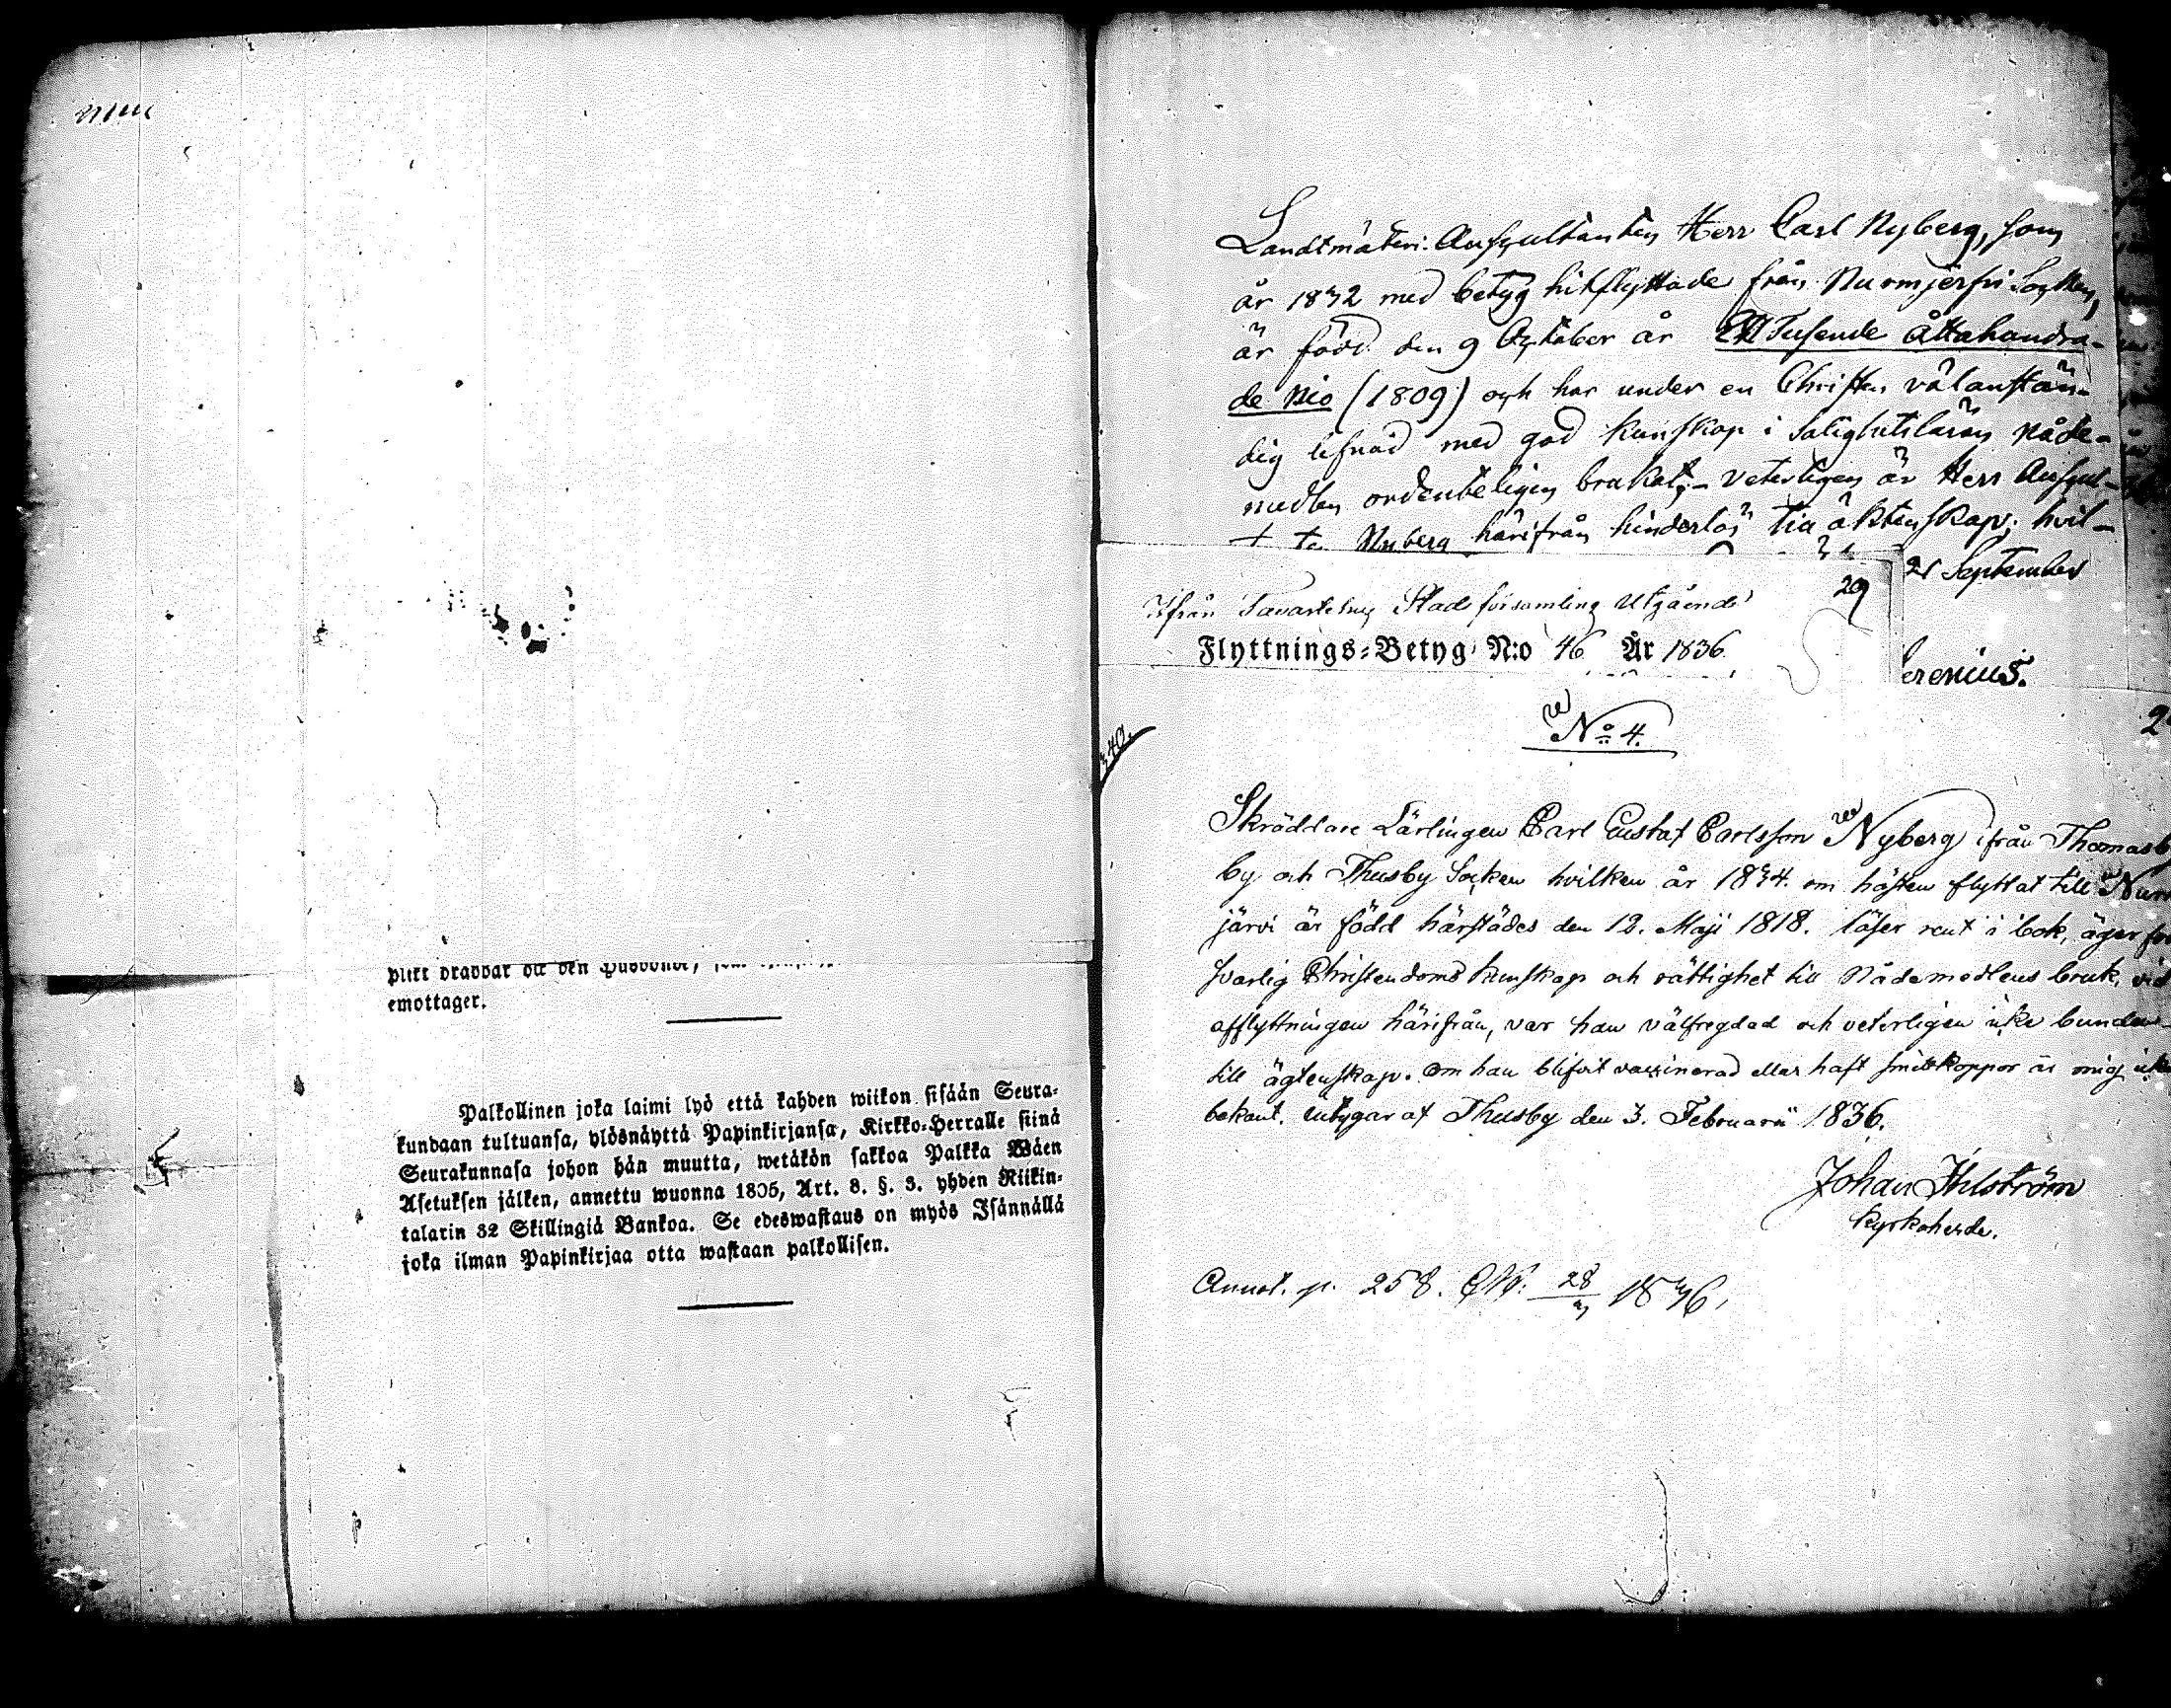 plikt drabbar ock den Husbonde,
emottager.
Palkollinen joka laimi lyö että kahden wiikon sisään Seura-
kundaan tultuansa, ylösnäyttä Papinkirjansa, Kirkko-Herralle siinä
Seurakunnasa johon hän muutta, wetäkön sakkoa Palkka Wäen
Asetuksen jälken, annettu wuonna 1805, Art. 8. §. 3. yhden Riikin-
talarin 32 Skillingiä Bankoa. Se edeswastaus on myös Isännällä
joka ilman Papinkirjaa otta wastaan palkollisen.
Landtmäteri-Auscultanten Herr Carl Nyberg, som
år 1832 med betyg hitflyttade från Nurmjerfvi Socken,
är född den 9 October år Ett Tusende Åttahundra-
de Nio (1809) och har under en Christen välanstän-
dig lefnad med god kunskap i Salighetsläran Nåde-
medlen ordenteligen brukat; - veterligen är Herr Auscul-
Nyberg härifrån hinderlös till äktenskap; hvil-
21 September
29
Ifrån Tavastehus Stads församling Utgående
Flyttnings-Betyg N:o 46 År 1836
erenius.
No 4.
340.
2
Skräddare Lärlingen Carl Gustaf Carlsson Nyberg ifrån Thomasby
by och Thusby Socken hvilken år 1834. om hösten flyttat till Nurm
järvi är född härstädes den 12. Maji 1818. läser rent i bok, äger för
svarlig Christendoms kunskap och rättighet till Nådemedlens bruk, vid
afflyttningen härifrån, var han välfregdad och veterligen icke bunden
till ägtenskap. Om han blifvit vaccinerad eller haft smittkoppor är mig icke
bekant. Betygar af Thusby den 3. Februarii 1836.
Johan Ihlström
Kyrkoherde.
Annot. p. 258. 28/3 1836.